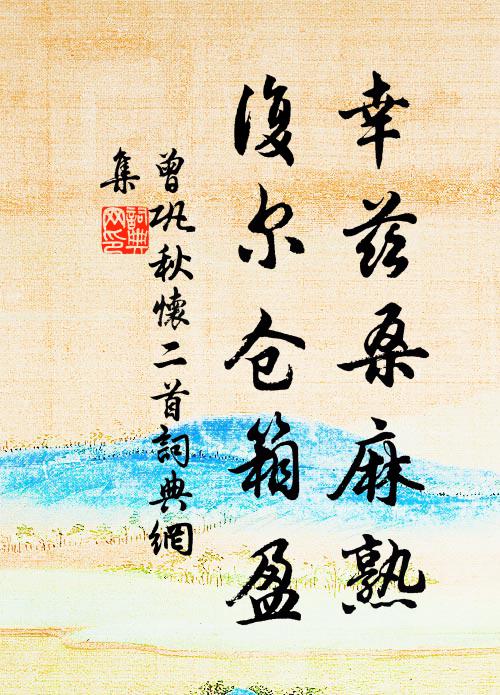 幸兹桑麻熟
復尔仓箱盈
曾巩秋懷二首詞典網
集
詞典網印